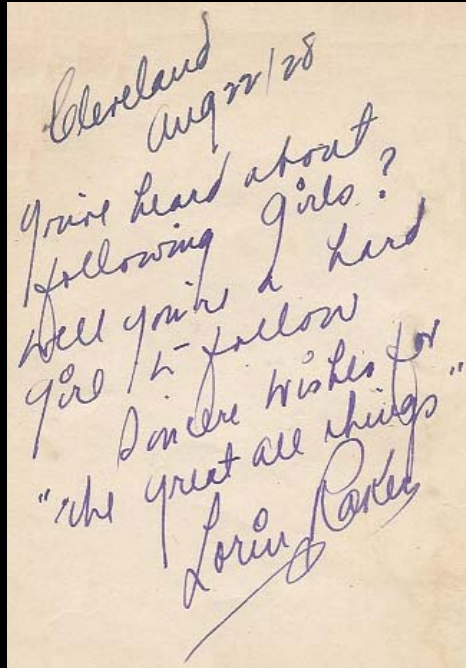 Cleveland
Aug 22/28
You've heard about
following girls?
Well you're a hard
girl to follow
Sincere wishes for
"the great all things"
Lorin Raker